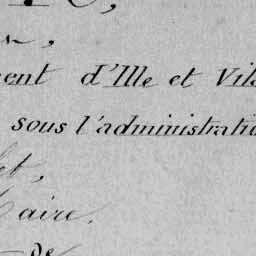 ent d'Ille et Vil
sous l'administratio
et,
aire.
de